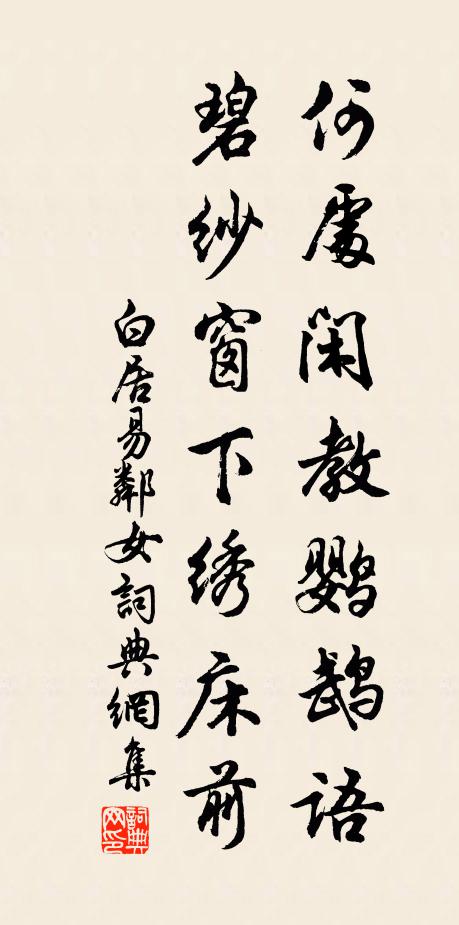 何處閑教鸚鵡語
碧紗窗下绣床前
白居易鄰女詞典網集
詞典網印